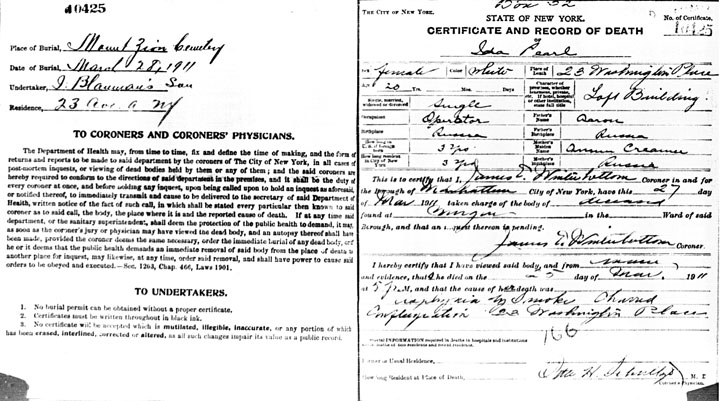 10425
Place of Burial, Mount Zion Cemetery
Date of Burial, March 28, 1911
Undertaker, J. Blauman's Son
Residence, 23 Ave. A NY
TO CORONERS AND CORONERS' PHYSICIANS.
The Department of Health may, from time to time, fix and define the time of making, and the form of
returns and reports to be made to said department by the coroners of The City of New York, in all cases of
post-mortem inquests, or viewing of dead bodies held by them or any of them; and the said coroners are
hereby required to conform to the directions of said department in the premises, and it shall be the duty of
every coroner at once, and before holding any inquest, upon being called upon to hold an inquest as aforesaid,
or notified thereof, to immediately transmit and cause to be delivered to the secretary of said Department of
Health, written notice of the fact of such call, which shall be stated every particular then known to said
coroner as to said call, the body, the place where it is and the reported cause of death. If at any time said
department, or the sanitary superintendent, shall deem the protection of the public health to demand it, may,
as soon as the coroner's jury or physician may have viewed the dead body, and an autopsy thereof shall have
been made, provided the coroner deems the same necessary, order the immediate burial of any dead body, or if
he or it deems that the public health demands an immediate removal of said body from the place of death to
another place for inquest, may likewise, at any time, order said removal, and shall have power to cause said
orders to be obeyed and executed.—Sec. 1203, Chap. 466, Laws 1901.
TO UNDERTAKERS.
1. No burial permit can be obtained without a proper certificate.
2. Certificates must be written throughout in black ink.
3. No certificate will be accepted which is mutilated, illegible, inaccurate, or any portion of which
has been erased, interlined, corrected or altered, as all such changes impair its value as a public record.
Box 52
THE CITY OF NEW YORK.
STATE OF NEW YORK.
No. of Certificate,
CERTIFICATE AND RECORD OF DEATH
10425
Ida Pearl
Sex female Color White Place of Death 23 Washington Place
Age 20 Yrs. Mos. Days
Character of premises, whether tenement, private, etc. If hotel, hospital or other institution, state full title Loft Building
Single, married, widowed or divorced Single
Occupation Operator Father's Name Aaron
Birthplace Russia Father's Birthplace Russia
How long in U.S. if foreign born 3 yrs Mother's Name Creamer
How long resident in City of New York 3 yrs Mother's Birthplace Russia
This is to certify that I, James E Winterbottom Coroner in and for
the Borough of Manhattan City of New York, have this 27 day
of Mar 1911 taken charge of the body of deceased
found at Morgue in the Ward of said
Borough, and that an inquest thereon is pending.
James E. Winterbottom Coroner.
I hereby certify that I have viewed said body, and from same
and evidence, that she died on the 25 day of Mar. 1911
at 5 P.M, and that the cause of her death was
asphyxia by Smoke Charred
Conflagration 23 Washington Place
166
Special INFORMATION required in deaths in hospitals and institutions
and in deaths of non-residents and recent residents.
Former or Usual Residence,
How long Resident at Place of Death,
M. D.
Coroner's Physician.